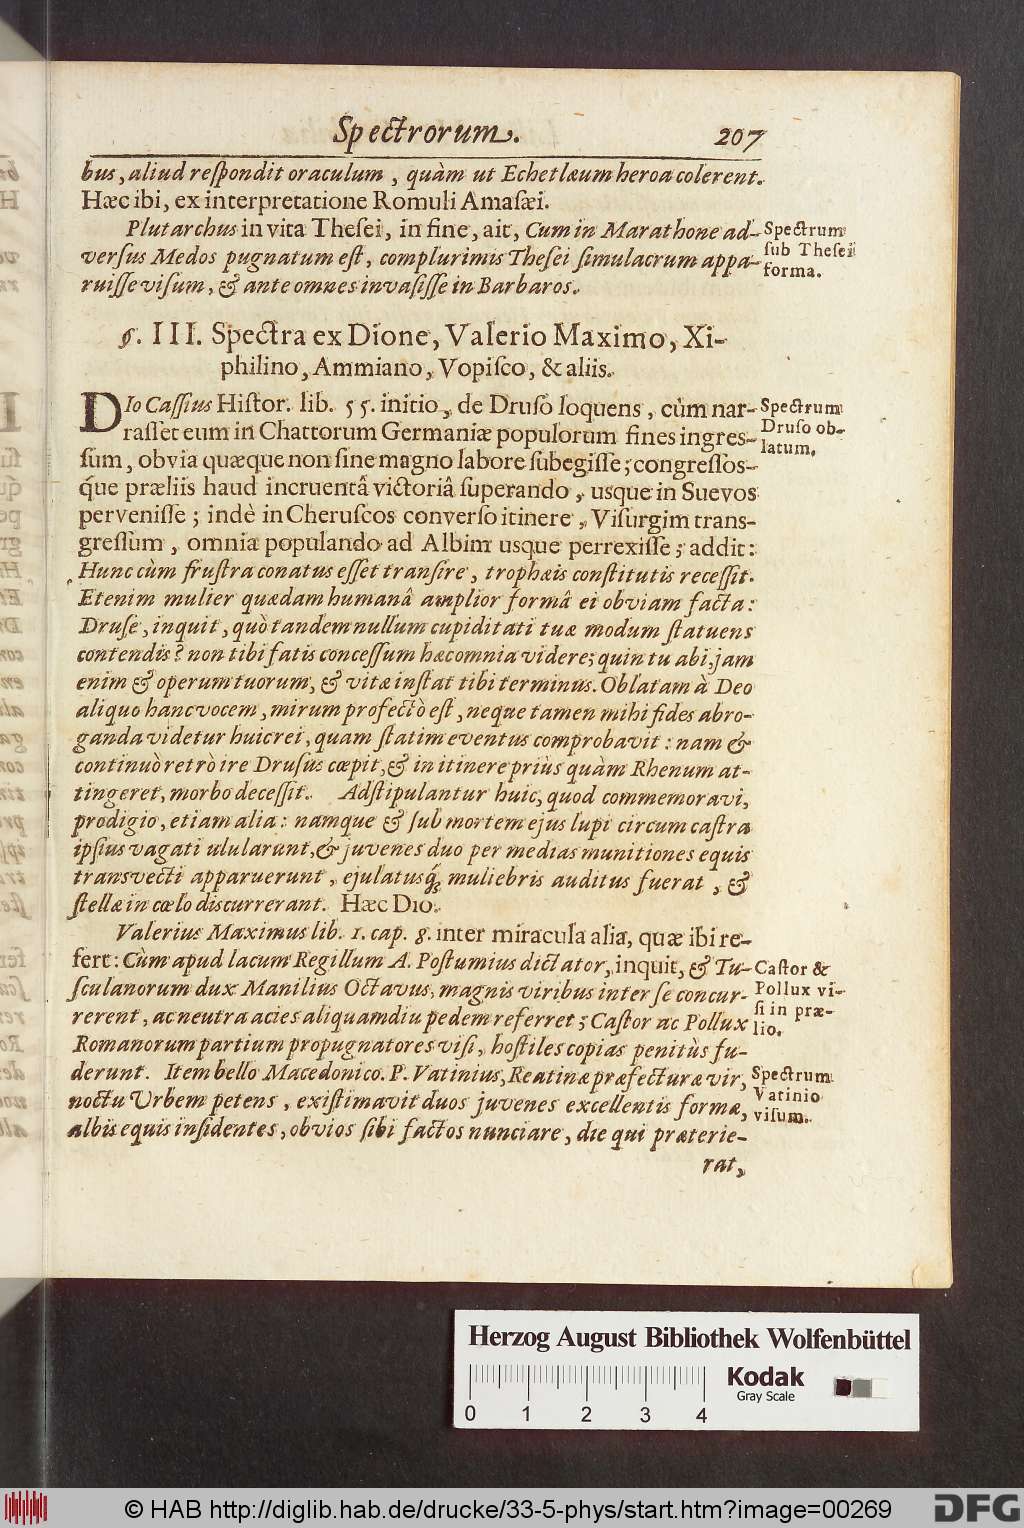 Spectrorum. 207
bus, aliud reſpondit oraculum, quàm ut Echetlæum heroa colerent.
Hæc ibi, ex interpretatione Romuli Amaſæi.
Plutarchus in vita Theſei, in fine, ait, Cum in Marathone ad-
verſus Medos pugnatum eſt, complurimis Theſei ſimulacrum appa-
ruiſſe viſum, & ante omnes invaſiſſe in Barbaros.
Spectrum
ſub Theſei
forma.
§. III. Spectra ex Dione, Valerio Maximo, Xi-
philino, Ammiano, Vopiſco, & aliis.
DIo Caſſius Hiſtor. lib. 55. initio, de Druſo loquens, cùm nar-
raſſet eum in Chattorum Germaniæ populorum fines ingreſ-
ſum, obvia quæque non ſine magno labore ſubegiſſe; congreſſos-
q́ue præliis haud incruentâ victoriâ ſuperando, usque in Suevos
perveniſſe; indè in Cheruſcos converſo itinere, Viſurgim trans-
greſſum, omnia populando ad Albim usque perrexiſſe; addit:
Spectrum
Druſo ob-
latum.
Hunc cùm fruſtra conatus eſſet tranſire, trophæis conſtitutis receſſit.
Etenim mulier quædam humanâ amplior formâ ei obviam facta:
Druſe, inquit, quò tandem nullum cupiditati tuæ modum ſtatuens
contendis? non tibi fatis conceſſum hæc omnia videre; quin tu abi, jam
enim & operum tuorum, & vitæ inſtat tibi terminus. Oblatam à Deo
aliquo hanc vocem, mirum profectò eſt, neque tamen mihi fides abro-
ganda videtur huic rei, quam ſtatim eventus comprobavit: nam &
continuò retrò ire Druſus cœpit, & in itinere priùs quàm Rhenum at-
tingeret, morbo deceſſit. Adſtipulantur huic, quod commemoravi,
prodigio, etiam alia: namque & ſub mortem ejus lupi circum caſtra
ipſius vagati ulularunt, & juvenes duo per medias munitiones equis
transvecti apparuerunt, ejulatusq́; muliebris auditus fuerat, &
ſtellæ in cœlo discurrerant. Hæc Dio.
Valerius Maximus lib. 1. cap. 8. inter miracula alia, quæ ibi re-
fert: Cùm apud lacum Regillum A. Poſtumius dictator, inquit, & Tu-
ſculanorum dux Manilius Octavus, magnis viribus inter ſe concur-
rerent, ac neutra acies aliquamdiu pedem referret; Caſtor ac Pollux
Romanorum partium propugnatores viſi, hoſtiles copias penitùs fu-
derunt. Item bello Macedonico. P. Vatinius, Reatinæ præfecturæ vir,
noctu Urbem petens, exiſtimavit duos juvenes excellentis formæ,
albis equis inſidentes, obvios ſibi factos nunciare, die qui præterie-
rat,
Caſtor &
Pollux vi-
ſi in præ-
lio.
Spectrum
Vatinio
viſum.
Herzog August Bibliothek Wolfenbüttel
Kodak
Gray Scale
0 1 2 3 4
© HAB http://diglib.hab.de/drucke/33-5-phys/start.htm?image=00269
DFG